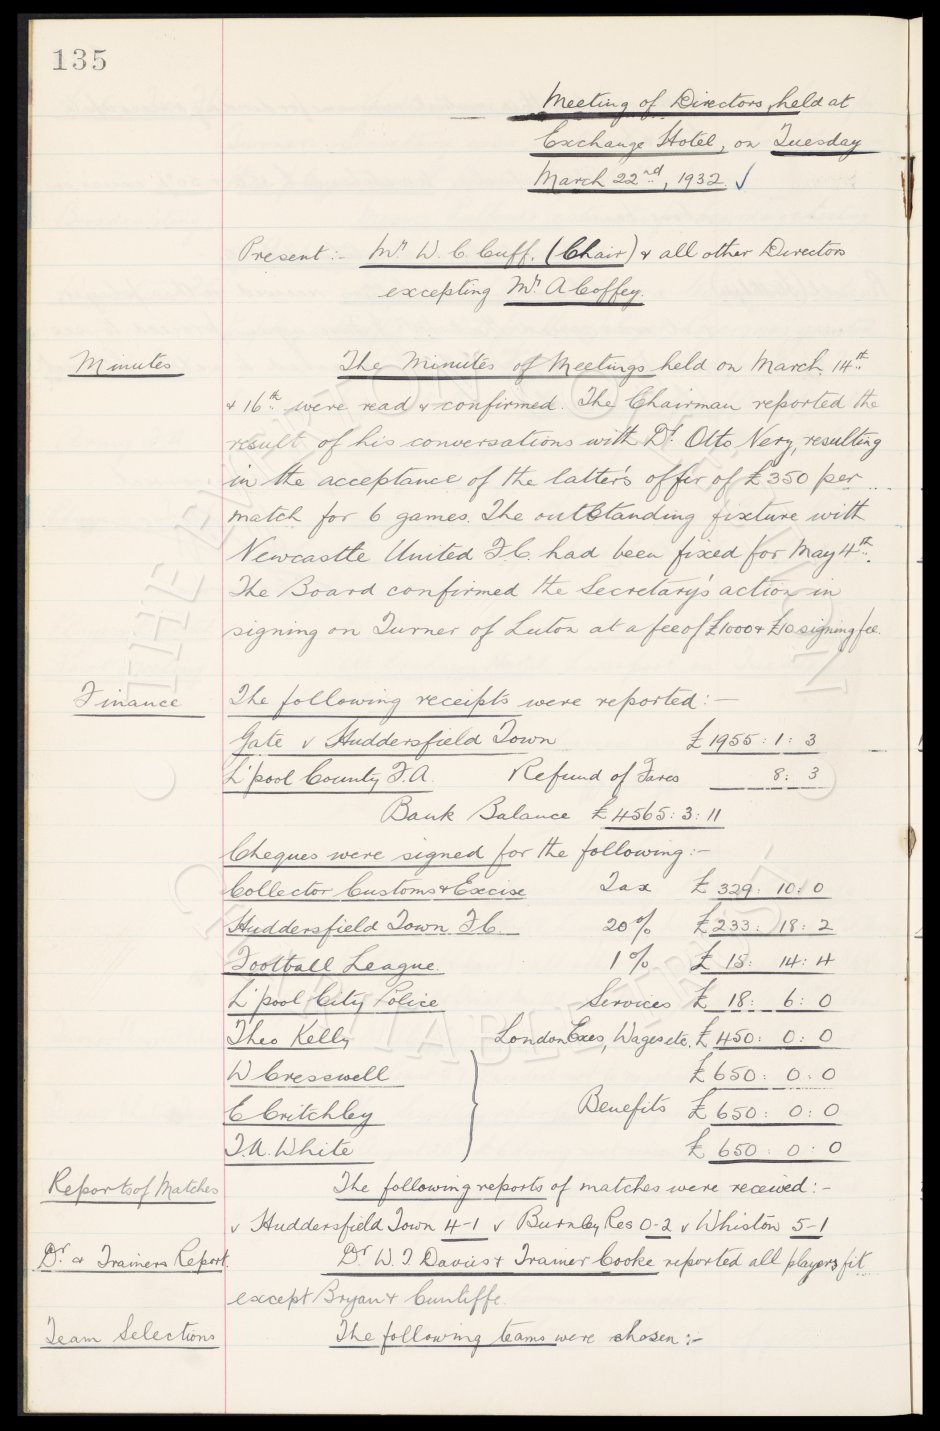 135
Meeting of Directors, held at
Exchange Hotel, on Tuesday
March 22nd, 1932. ✓
Present:- Mr W. C. Cuff. (Chair) & all other Directors
excepting Mr. A Coffey.
Minutes The Minutes of Meetings held on March 14th
& 16th were read & confirmed. The Chairman reported the
result of his conversations with Dr Otto Nery, resulting
in the acceptance of the latter's offer of £350 per
match for 6 games. The outstanding fixture with
Newcastle United F.C. had been fixed for May 4th.
The Board confirmed the Secretary's action in
signing on Turner of Luton at a fee of £1000 & £10 signing fee.
Finance The following receipts were reported:-
Gate v Huddersfield Town £1955:1:3
L'pool County F.A. Refund of Fares 8:3
Bank Balance £4565:3:11
Cheques were signed for the following:-
Collector Customs & Excise Tax £329:10:0
Huddersfield Town F.C. 20% £233:18:2
Football League 1% £18:14:4
L'pool City Police Services £18:6:0
Theo Kelly London Exes, Wages etc. £450:0:0
W Cresswell £650:0:0
E Critchley Benefits £650:0:0
T.A. White £650:0:0
Reports of Matches The following reports of matches were received:-
v Huddersfield Town 4-1 v Burnley Res 0-2 v Whiston 5-1
Dr & Trainers Report. Dr W. T. Davies & Trainer Cooke reported all players fit
except Bryan & Cunliffe.
Team Selections The following teams were chosen:-
THE EVERTON COLLECTION
CHARITABLE TRUST